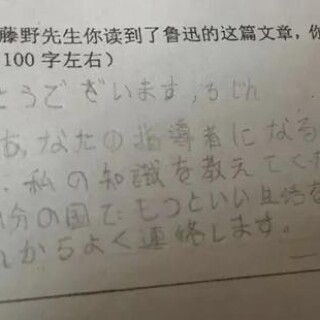 藤野先生你读到了鲁迅的这篇文章，你
100字左右）
とうございます，ろじん
あなたの指導者になる
私の知識を教えてく
分の国でもっといい生活を
からよく連絡します。